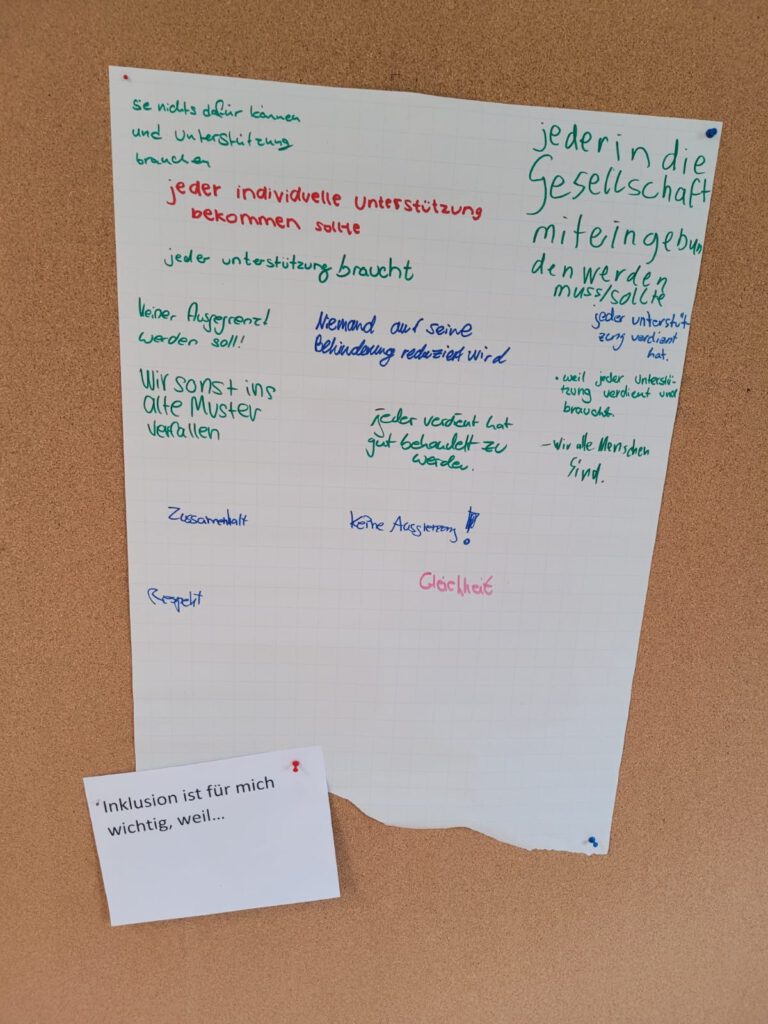 sie nichts dafür können
und Unterstützung
brauchen
jeder individuelle Unterstützung
bekommen sollte
jeder unterstützung braucht
keiner Ausgegrenzt
werden soll!
Niemand auf seine
Behinderung reduziert wird
Wir sonst ins
alte Muster
verfallen
jeder verdient hat
gut behandelt zu
werden.
Zusammenhalt
keine Ausgrenzung!
Gleichheit
Respekt
jeder in die
Gesellschaft
miteingebun
den werden
muss/sollte
jeder unterstüt
zung verdient
hat.
• weil jeder unterstü-
tzung verdient und
braucht.
- Wir alle Menschen
Sind.
Inklusion ist für mich
wichtig, weil...